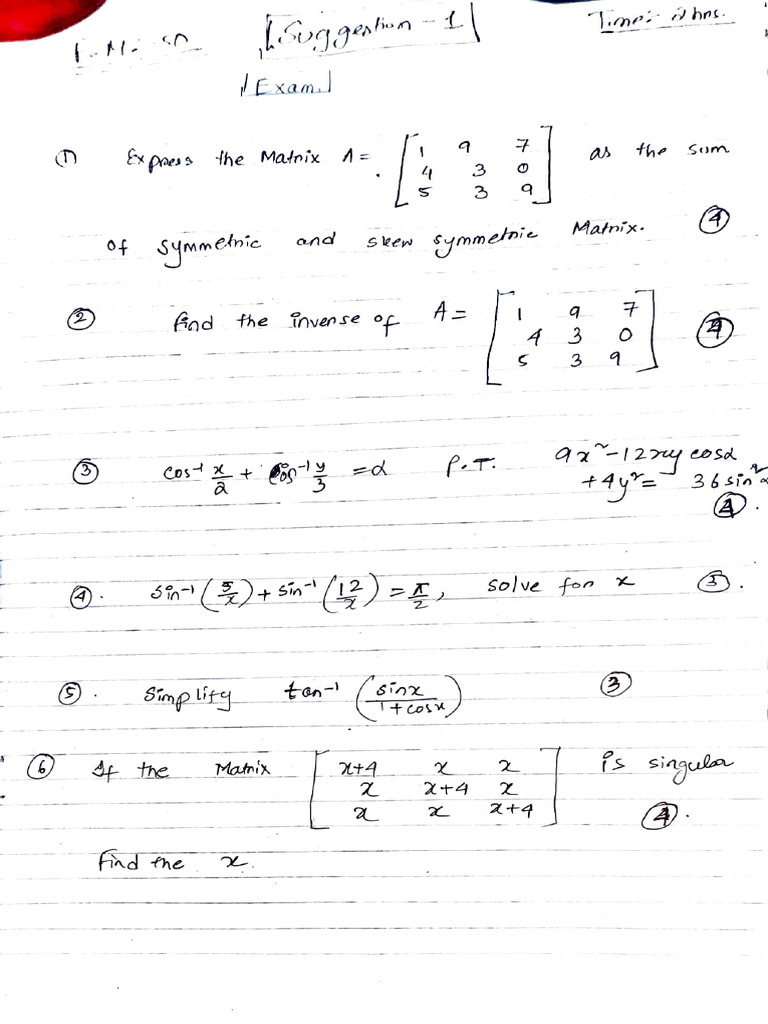 Suggestion - 1
Time:- 2 hrs.
Exam.
① Express the Matrix A = [1 9 7
4 3 0
5 3 9] as the sum
of symmetric and skew symmetric Matrix. ④
② find the inverse of A = [1 9 7
4 3 0
5 3 9] ④
③ cos⁻¹ x/2 + cos⁻¹ y/3 = α P.T. 9x² - 12xy cosα
+ 4y² = 36 sin²α
④.
④. sin⁻¹ (5/x) + sin⁻¹ (12/x) = π/2, solve for x ③.
⑤. Simplify tan⁻¹ (sinx / 1 + cosx) ③
⑥ If the Matrix [x+4 x x
x x+4 x
x x x+4] is singular
④.
find the x.